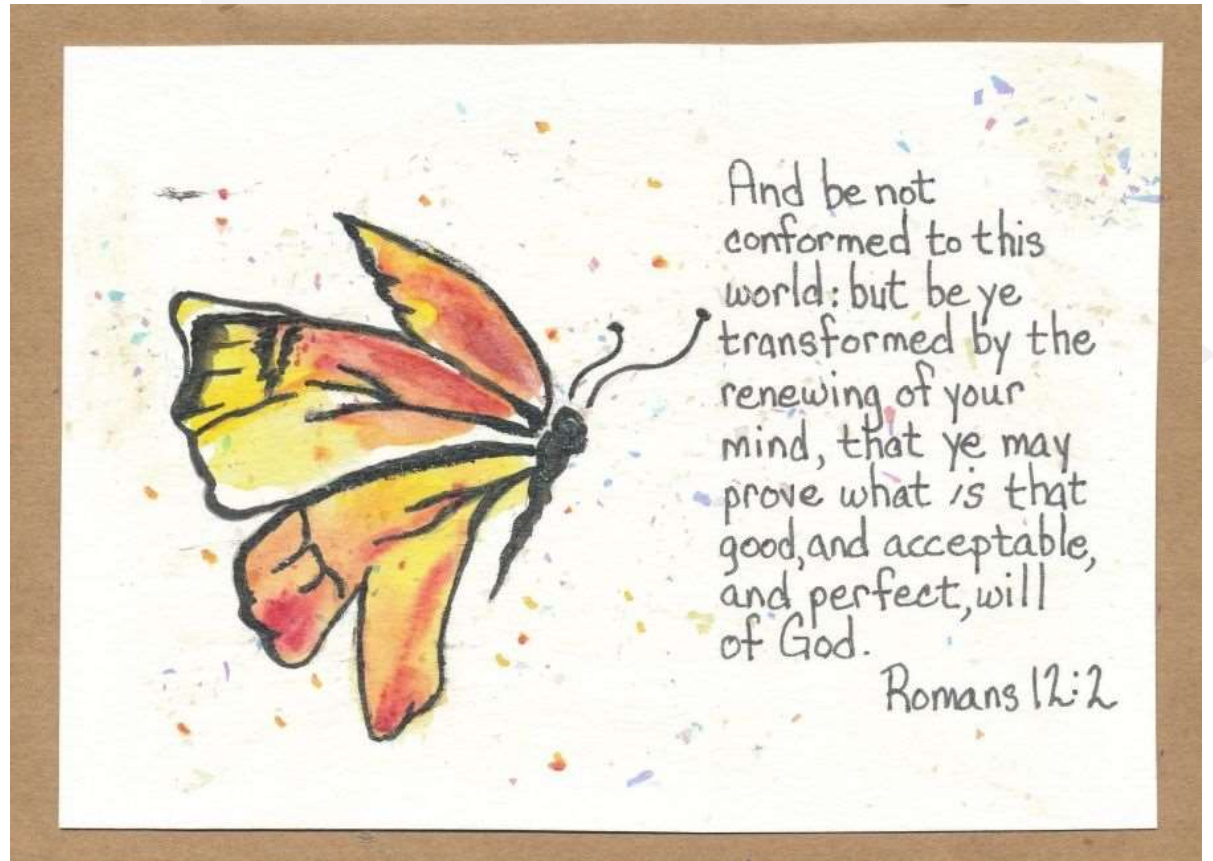 And be not
conformed to this
world: but be ye
transformed by the
renewing of your
mind, that ye may
prove what is that
good, and acceptable,
and perfect, will
of God.
Romans 12:2